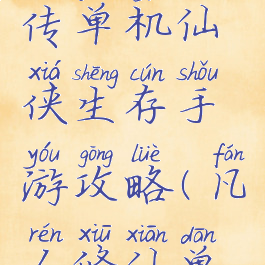 传单机仙
xiá shēng cún shǒu
侠生存手
yóu gōng lüè fán
游攻略(凡
rén xiū xiān dān
人修仙单